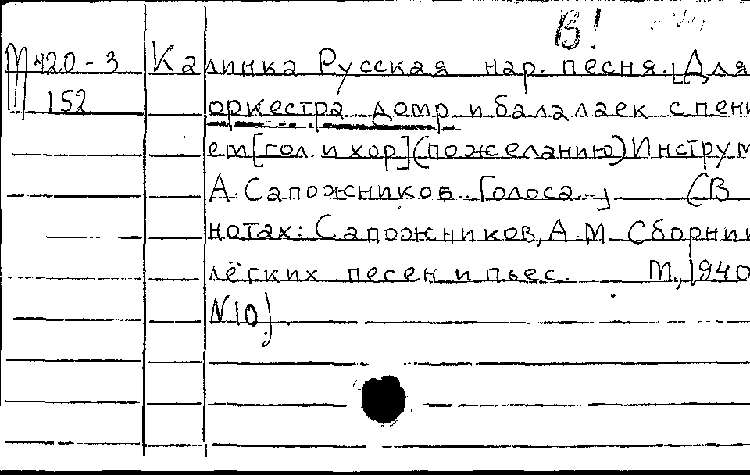 В!
М 420-3 Калинка Русская нар. песня. [Для
152 оркестра домр и балалаек с пени
ем [гол и хор] (по желанию) Инструм
А. Сапожников. Голоса.] (В
нотах: Сапожников, А.М. Сборник
лёгких песен и пьес. М., 1940
N10)